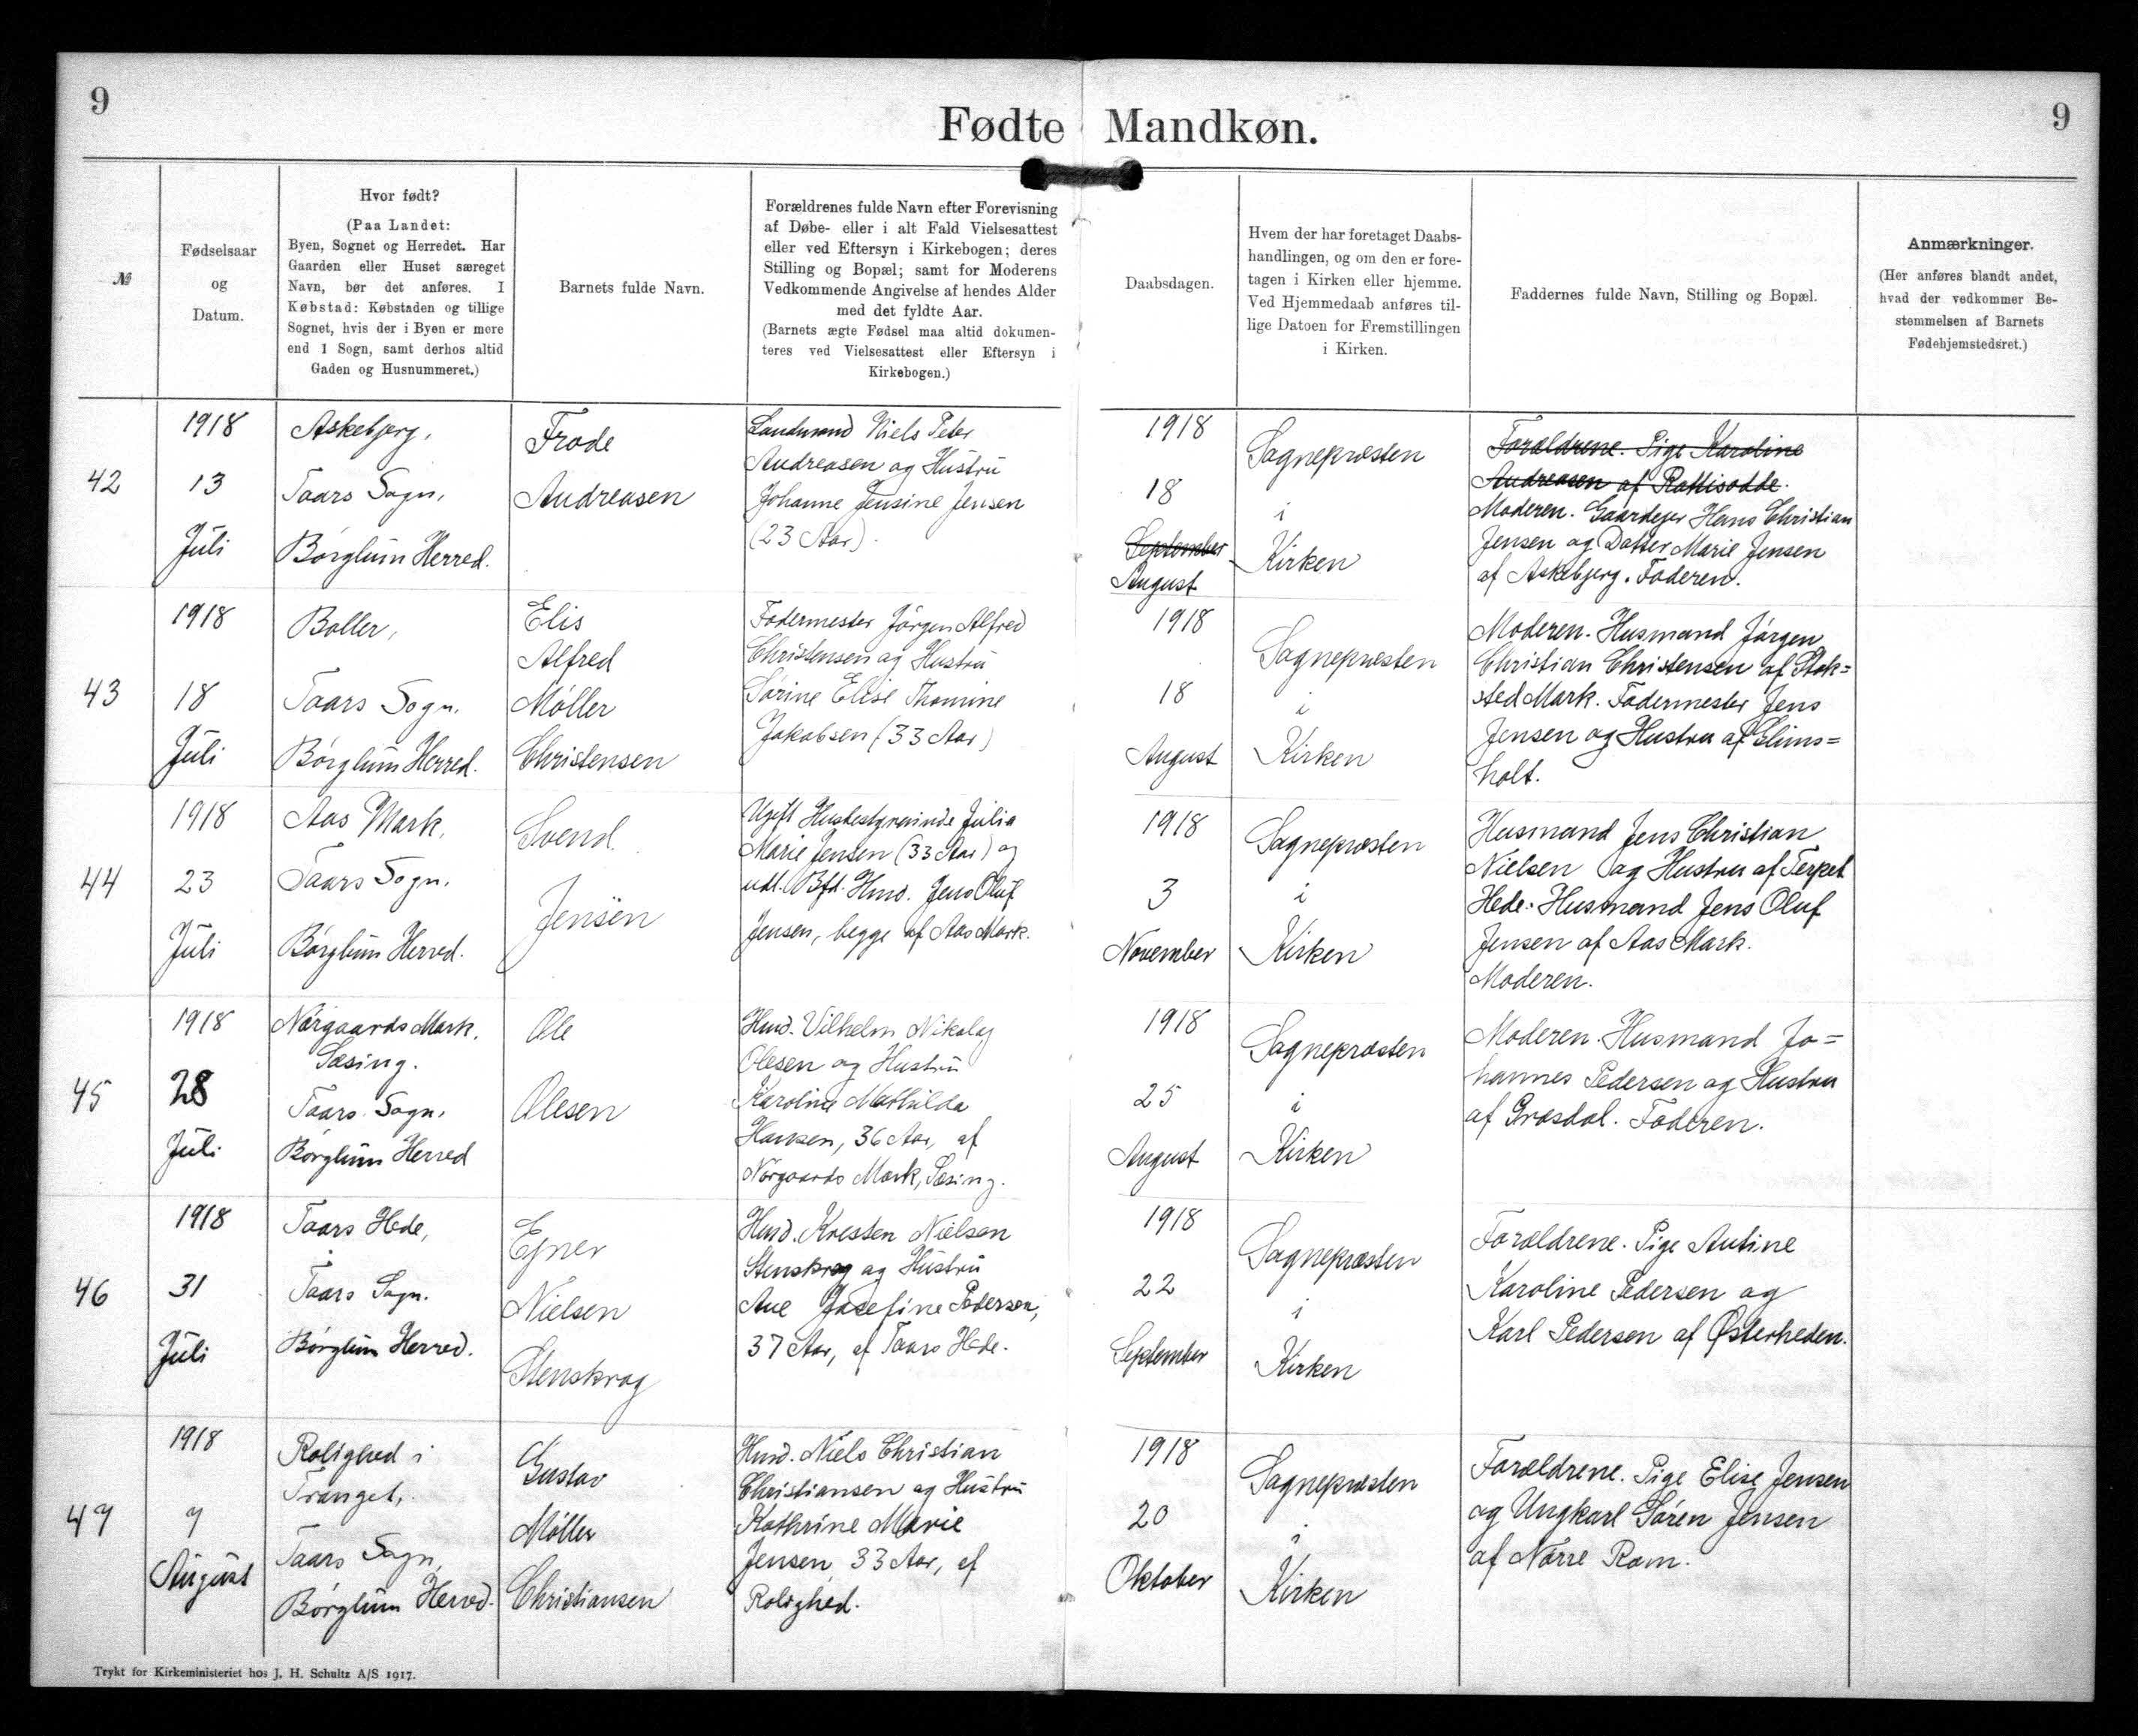 9
9
Fødte Mandkøn.
№
Fødselsaar
og
Datum.
Hvor født?
(Paa Landet:
Byen, Sognet og Herredet. Har
Gaarden eller Huset særeget
Navn, bør det anføres. I
Købstad: Købstaden og tillige
Sognet, hvis der i Byen er mere
end 1 Sogn, samt derhos altid
Gaden og Husnummeret.)
Barnets fulde Navn.
Forældrenes fulde Navn efter Forevisning
af Døbe- eller i alt Fald Vielsesattest
eller ved Eftersyn i Kirkebogen; deres
Stilling og Bopæl; samt for Moderens
Vedkommende Angivelse af hendes Alder
med det fyldte Aar.
(Barnets ægte Fødsel maa altid dokumen-
teres ved Vielsesattest eller Eftersyn i
Kirkebogen.)
Daabsdagen.
Hvem der har foretaget Daabs-
handlingen, og om den er fore-
tagen i Kirken eller hjemme.
Ved Hjemmedaab anføres til-
lige Datoen for Fremstillingen
i Kirken.
Faddernes fulde Navn, Stilling og Bopæl.
Anmærkninger.
(Her anføres blandt andet,
hvad der vedkommer Be-
stemmelsen af Barnets
Fødehjemstedsret.)
42
1918
13
Juli
Askebjerg,
Taars Sogn,
Börglum Herred.
Frode
Andreasen
Landmand Niels Peter
Andreasen og Hustru
Johanne Jensine Jensen
(23 Aar).
1918
18
September
August
Sognepræsten
i
Kirken
Forældrene. Pige Karoline
Andreasen af
Moderen. Gaardejer Hans Christian
Jensen og Datter Marie Jensen
af Askebjerg. Faderen.
43
1918
18
Juli
Boller,
Taars Sogn.
Börglum Herred.
Elis
Alfred
Möller
Christensen
Fodermester Jörgen Alfred
Christensen og Hustru
Sörine Elise Thomine
Jakobsen (33 Aar)
1918
18
August
Sognepræsten
i
Kirken
Moderen. Husmand Jörgen
Christian Christensen af Stok=
sted Mark. Fodermester Jens
Jensen og Hustru af Glims=
holt.
44
1918
23
Juli
Aas Mark,
Taars Sogn.
Börglum Herred.
Svend
Jensen
Ugift Husbestyrerinde Julia
Marie Jensen (33 Aar) og
udl. Bfd. Hmd. Jens Oluf
Jensen, begge af Aas Mark.
1918
3
November
Sognepræsten
i
Kirken
Husmand Jens Christian
Nielsen og Hustru af Terpet
Hede. Husmand Jens Oluf
Jensen af Aas Mark.
Moderen.
45
1918
28
Juli
Nörgaards Mark,
Sæsing.
Taars Sogn,
Börglum Herred
Ole
Olesen
Hmd. Vilhelm Nikolaj
Olesen og Hustru
Karoline Mathilda
Hansen, 36 Aar, af
Nörgaards Mark, Sæsing.
1918
25
August
Sognepræsten
i
Kirken
Moderen. Husmand Jo=
hannes Pedersen og Hustru
af Græsdal. Faderen.
46
1918
31
Juli
Taars Hede,
Taars Sogn.
Börglum Herred.
Ejner
Nielsen
Stenskrog
Hmd. Kresten Nielsen
Stenskrog og Hustru
Ane Josefine Pedersen,
37 Aar, af Taars Hede.
1918
22
September
Sognepræsten
i
Kirken
Forældrene. Pige Antine
Karoline Pedersen og
Karl Pedersen af Østerheden.
47
1918
7
August
Rolighed i
Tranget,
Taars Sogn,
Börglum Herred.
Gustav
Möller
Christiansen
Hmd. Niels Christian
Christiansen og Hustru
Kathrine Marie
Jensen, 33 Aar, af
Rolighed.
1918
20
Oktober
Sognepræsten
i
Kirken
Forældrene. Pige Elise Jensen
og Ungkarl Sören Jensen
af Nörre Ram.
Trykt for Kirkeministeriet hos J. H. Schultz A/S 1917.